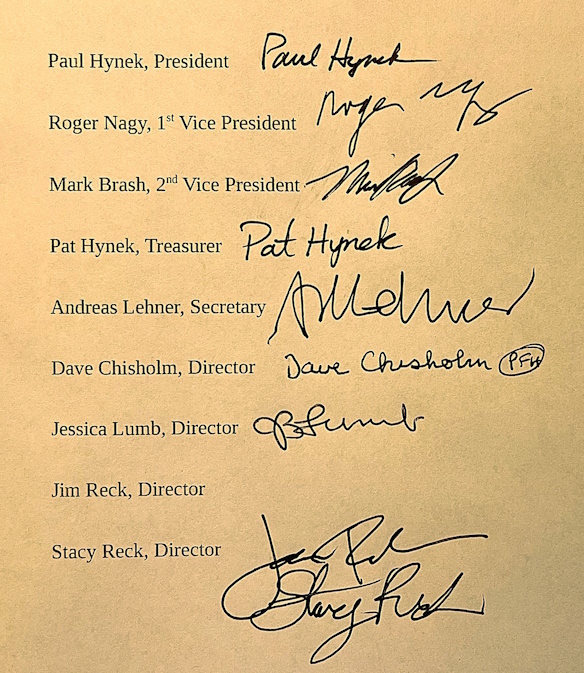 Paul Hynek, President Paul Hynek
Roger Nagy, 1st Vice President Roger Nagy
Mark Brash, 2nd Vice President
Pat Hynek, Treasurer Pat Hynek
Andreas Lehner, Secretary A Lehner
Dave Chisholm, Director Dave Chisholm PFH
Jessica Lumb, Director JB Lumb
Jim Reck, Director
Stacy Reck, Director
Stacy Reck